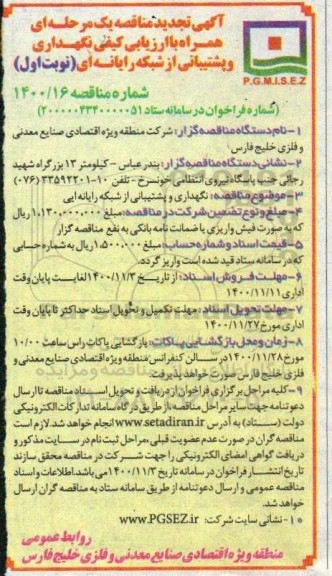 آگهی تجدید مناقصه یک مرحله ای
همراه با ارزیابی کیفی نگهداری
و پشتیبانی از شبکه رایانه ای (نوبت اول)
P.G.M.I.S.E.Z
شماره مناقصه ۱۴۰۰/۱۶
(شماره فراخوان در سامانه ستاد ۲۰۰۰۰۰۴۳۴۰۰۰۰۵۱)
۱-نام دستگاه مناقصه گزار: شرکت منطقه ویژه اقتصادی صنایع معدنی
و فلزی خلیج فارس
۲-نشانی دستگاه مناقصه گزار: بندرعباس - کیلومتر ۱۳ بزرگراه شهید
رجائی جنب پاسگاه نیروی انتظامی خونسرخ - تلفن ۱۰-۳۳۵۹۲۲۰۱ (۰۷۶)
۳-موضوع مناقصه: نگهداری و پشتیبانی از شبکه رایانه ایی
۴-مبلغ و نوع تضمین شرکت در مناقصه: مبلغ ۱،۱۳۰،۰۰۰،۰۰۰ ریال
که به صورت فیش واریزی یا ضمانت نامه بانکی به نفع مناقصه گزار
۵-قیمت اسناد و شماره حساب: مبلغ ۱،۵۰۰،۰۰۰ ریال به شماره حسابی
که در سامانه ستاد قید شده است واریز گردد.
۶-مهلت فروش اسناد: از تاریخ ۱۴۰۰/۱۱/۳ لغایت پایان وقت
اداری ۱۴۰۰/۱۱/۱۱
۷-مهلت تحویل اسناد: مهلت تکمیل و تحویل اسناد حداکثر تا پایان وقت
اداری مورخ ۱۴۰۰/۱۱/۲۷
۸-زمان و محل بازگشایی پاکات: بازگشایی پاکات راس ساعت ۱۰/۰۰
مورخ ۱۴۰۰/۱۱/۲۸ در سالن کنفرانس منطقه ویژه اقتصادی صنایع معدنی و
فلزی خلیج فارس صورت خواهد پذیرفت.
۹-کلیه مراحل برگزاری فراخوان از دریافت و تحویل اسناد مناقصه تا ارسال
دعوتنامه جهت سایر مراحل مناقصه، از طریق درگاه سامانه تدارکات الکترونیکی
دولت (ستاد) به آدرس www.setadiran.ir انجام خواهد شد. لازم است
مناقصه گران در صورت عدم عضویت قبلی، مراحل ثبت نام در سایت مذکور و
دریافت گواهی امضای الکترونیکی را جهت شرکت در مناقصه محقق سازند
تاریخ انتشار فراخوان در سامانه تاریخ ۱۴۰۰/۱۱/۳ می باشد. اطلاعات و اسناد
مناقصه عمومی و ارسال دعوتنامه از طریق سامانه ستاد به مناقصه گران ارسال
خواهد شد.
۱۰-نشانی سایت شرکت: www.PGSEZ.ir
روابط عمومی
منطقه ویژه اقتصادی صنایع معدنی و فلزی خلیج فارس